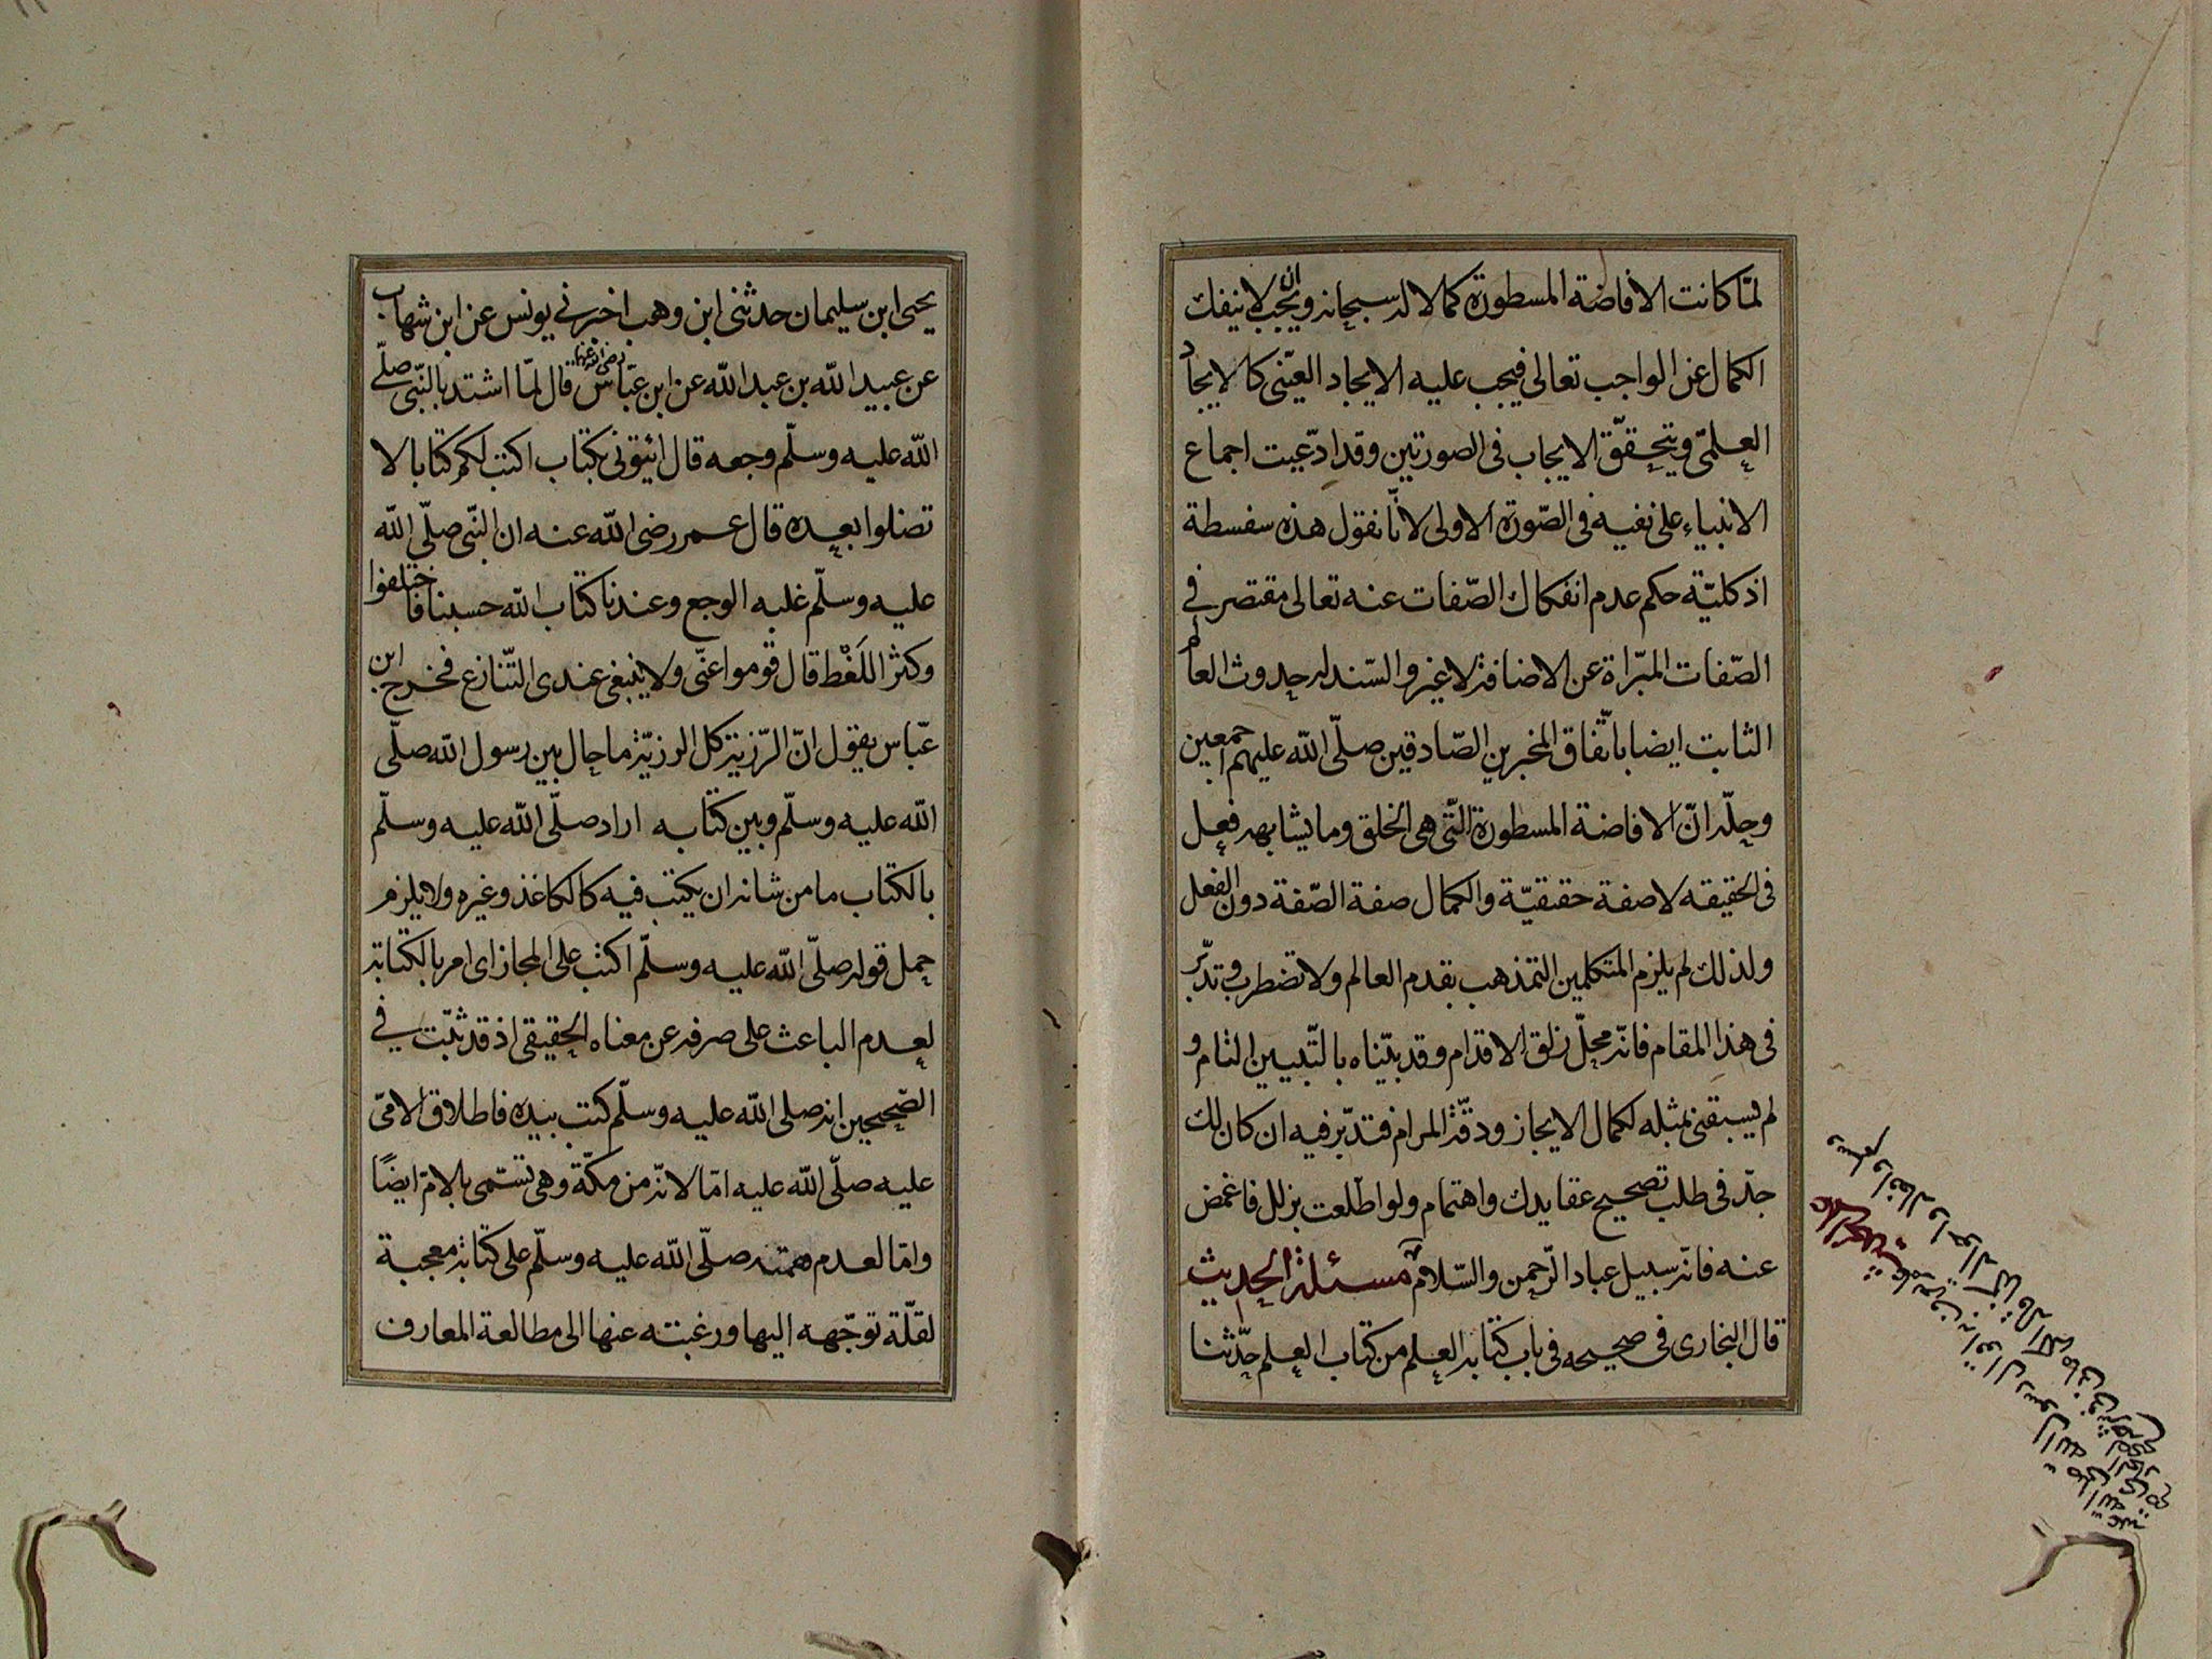 لمّا كانت الافاضة المسطورة كمالا له سبحانه ويجب ان لا ينفك
الكمال عن الواجب تعالى فيجب عليه الايجاد العينى كالايجاد
العلمى ويتحقق الايجاب فى الصورتين وقد ادّعيت اجماع
الانبياء على نفيه فى الصّورة الاولى لانّا نقول هذه سفسطة
اذ كليّة حكم عدم انفكاك الصّفات عنه تعالى مقتصر فى
الصّفات المبّراة عن الاضافة لا غير والسّند له حدوث العالم
الثابت ايضا باتّفاق المخبرين الصّادقين صلّى الله عليهم اجمعين
وحلّه انّ الافاضة المسطورة الّتى هى الخلق وما يشابهه فعل
فى الحقيقه لا صفة حقيقيّة والكمال صفة الصّفة دون الفعل
ولذلك لم يلزم المتكلمين التمذهب بقدم العالم ولا تضطرب وتدبّر
فى هذا المقام فانّه محلّ زلق الاقدام وقد بيّناه بالتّبيين التام و
لم يسبقنى بمثله لكمال الايجاز ودقّة المرام فتدبّر فيه ان كان لك
جدّ فى طلب تصحيح عقايدك واهتمام ولو اطّلعت بزلل فاغمض
عنه فانّه سبيل عباد الرّحمن والسّلام مسئلة الحديث
قال البخارى فى صحيحه فى باب كتابة العلم من كتاب العلم حدّثنا
يحيى ابن سليمان حدثنى ابن وهب اخبرنى يونس عن ابن شهاب
عن عبيد الله بن عبد الله عن ابن عبّاس رضى الله عنهما قال لمّا اشتد بالنّبى صلّى
الله عليه وسلّم وجعه قال ائيتونى بكتاب اكتب لكم كتابا لا
تضلوا بعده قال عمر رضى الله عنه ان النّبى صلّى الله
عليه وسلّم غلبه الوجع وعندنا كتاب الله حسبنا فاختلفوا
وكثر اللَغْط قال قوموا عنّى ولا ينبغى عندى التّنازع فخرج ابن
عبّاس يقول انّ الرّزية كل الرزيّة ما حال بين رسول الله صلّى
الله عليه وسلّم وبين كتابه اراد صلّى الله عليه وسلّم
بالكتاب ما من شانه ان يكتب فيه كالكاغذ وغيره ولا يلزم
حمل قوله صلّى الله عليه وسلّم اكتب على المجاز اى امر بالكتابة
لعدم الباعث على صرفه عن معناه الحقيقى اذ قد ثبّت فى
الصّحيحين انه صلى الله عليه وسلّم كتب بيده فاطلاق الامّى
عليه صلّى الله عليه امّا لانّه من مكّة وهى تسّمى بالامّ ايضًا
وامّا لعدم همّته صلّى الله عليه وسلّم على كتابة معجبة
لقلّة توجّهه اليها ورغبته عنها الى مطالعة المعارف